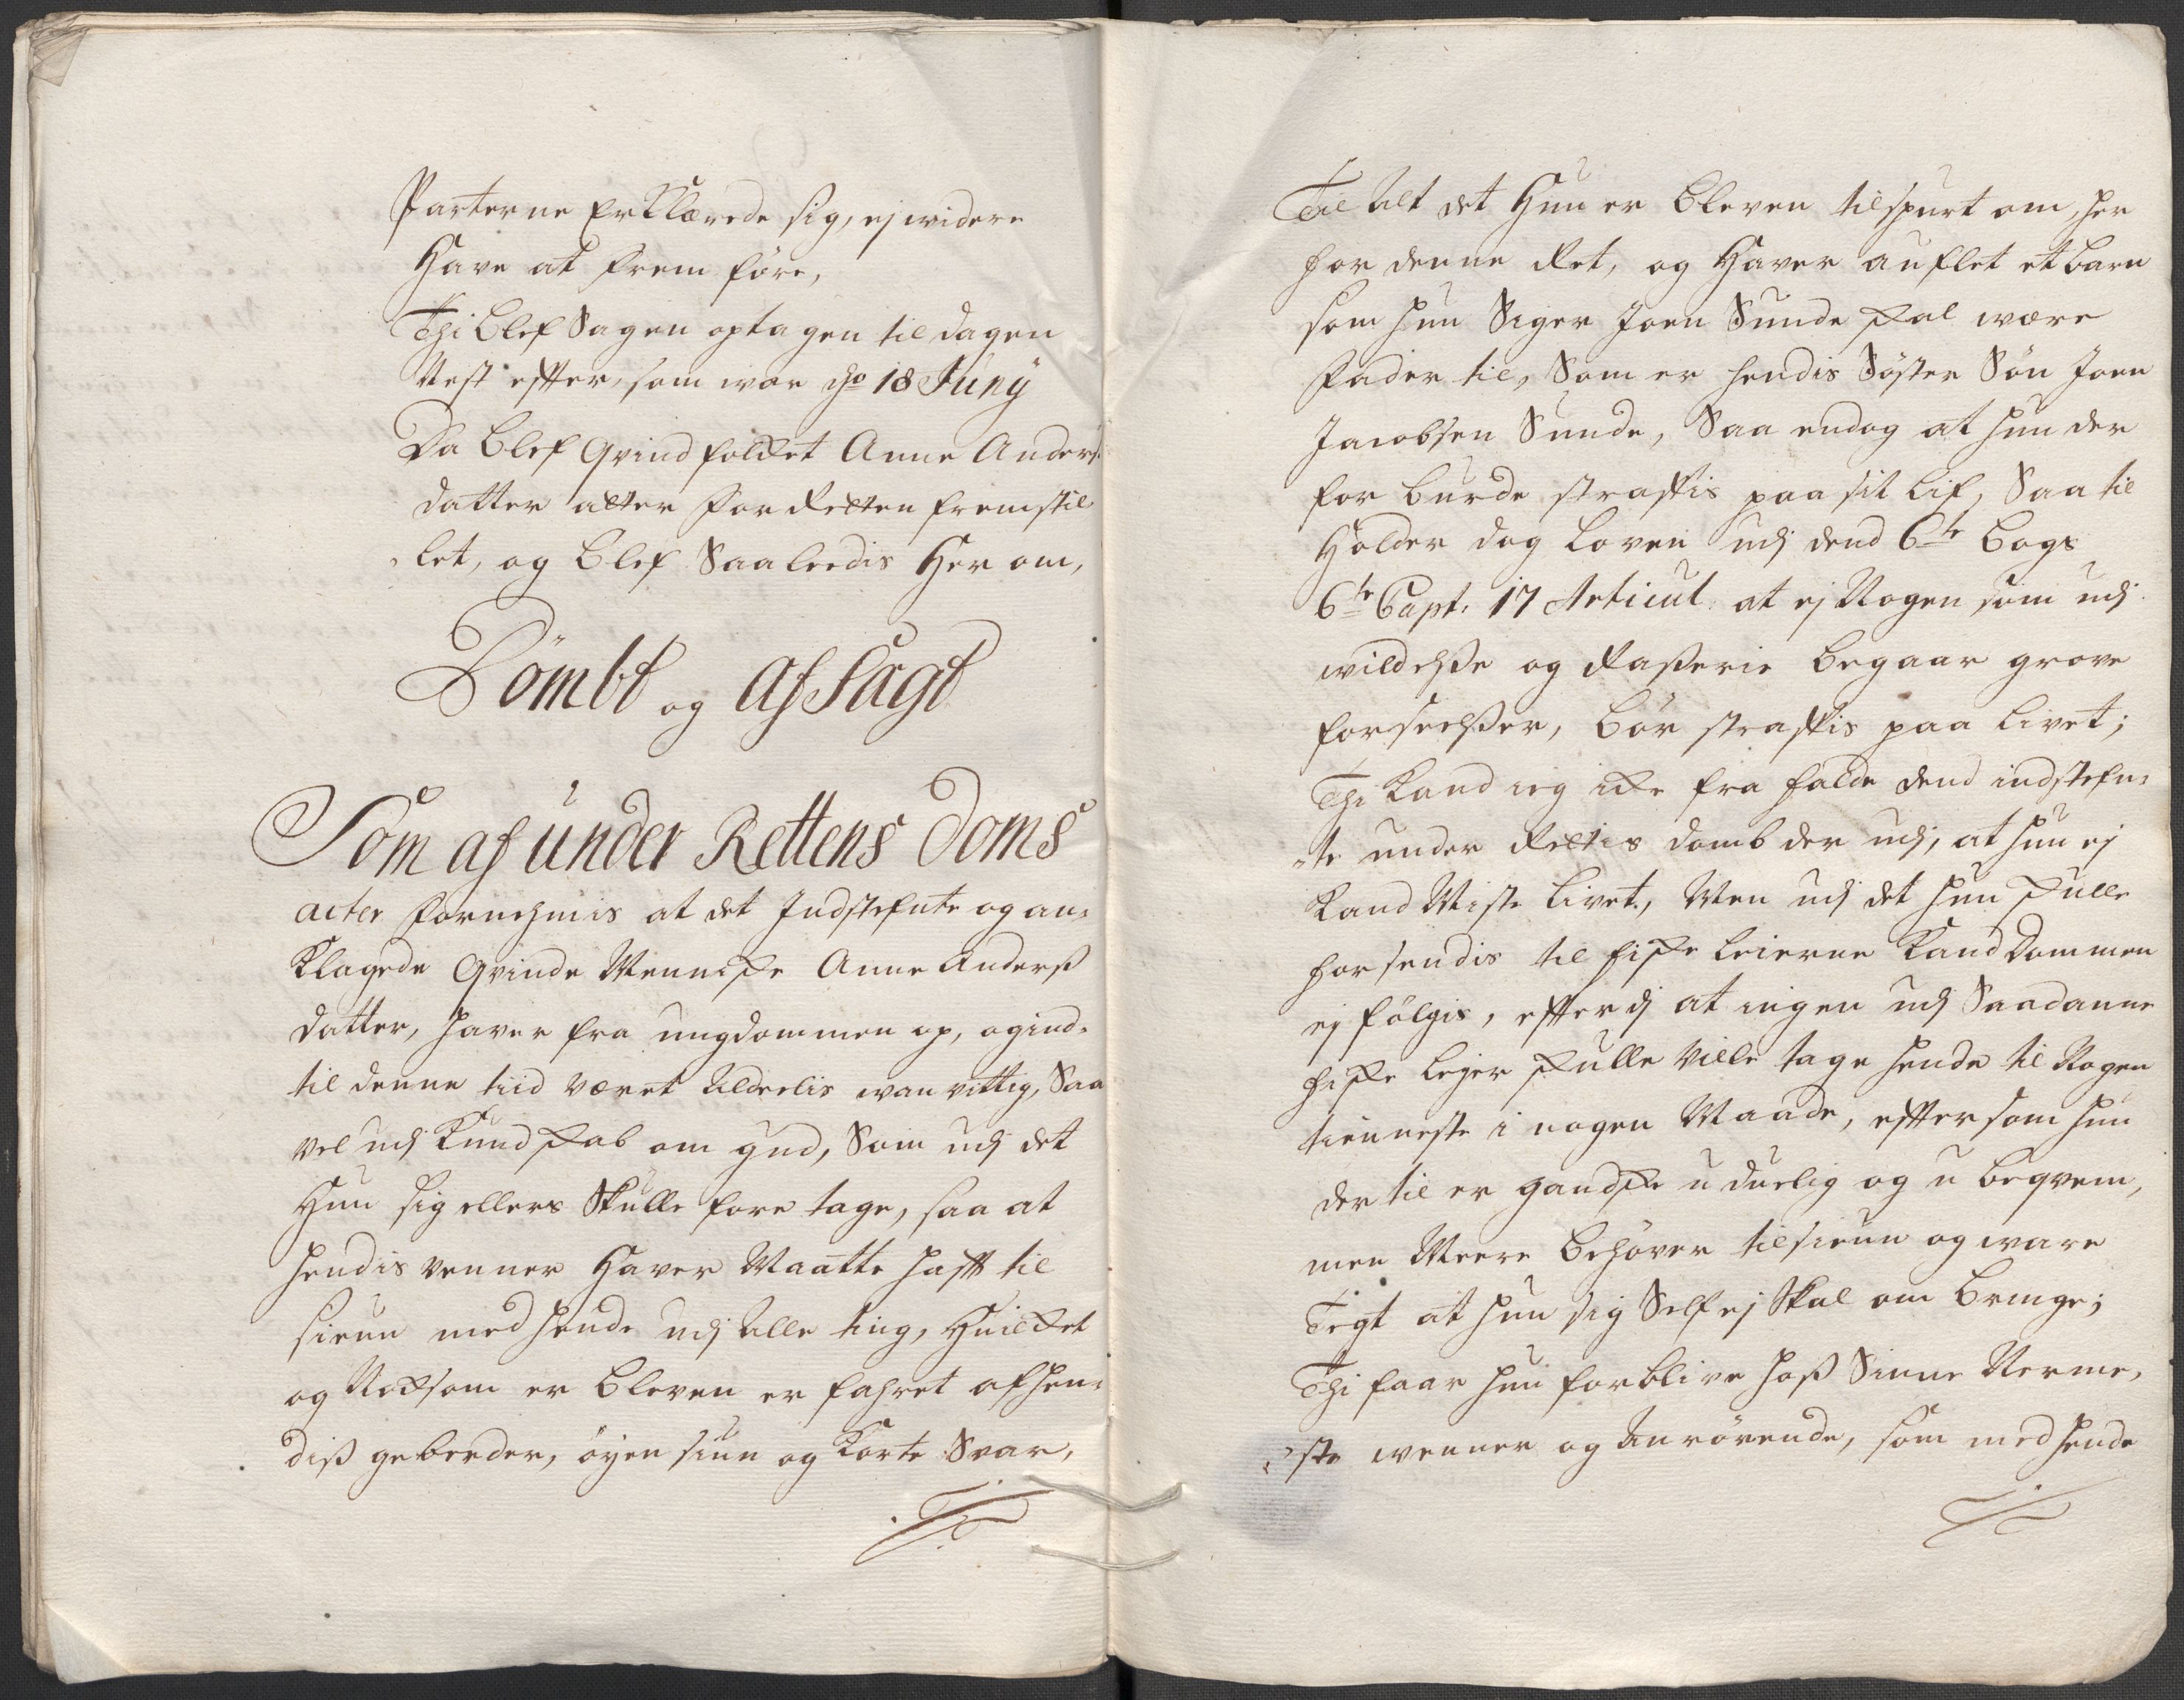 Parterne Erklærede sig, ej widere
Have at frem føre,
Thi blef Sagen optagen til dagen
Nest efter, som war dn 18 Juny
Da blef Qvindfolket Anne Anders
datter atter for Retten fremstil
let, og blef Saaleedis Her om,
Dömbt og Afsagt
Som af under Rettens Doms
acter fornehmis at det Indstefnte og an-
klagede Qvinde Menniske Anne Anderß
datter, haver fra ungdommen op, og ind-
til denne tiid været Alderlis wanvittig, Saa
vel udj Kundskab om gud, Som udj det
Hun sig ellers Skulle fore tage, saa at
hendis venner Haver Maatte hafft til
siuun med hende udj Alle ting, Huilket
og Noksom er bleven er fahret af hen-
diß geberder, öyen siun og korte Svar,
Til Alt det Hun er bleven tilspurt om, her
for denne Ret, og Haver auflet et barn
som hun Siger Joen Sunde skal være
fader til, Som er hendis Söster Sön Joen
Jacobsen Sunde, Saa endog at hun der
for burde straffis paa sit lif, Saa til
Holder dog Loven udj dend 6te bogs
6te Capt. 17 Articul. at ej Nogen som udj
wildelße og Raßerie begaar grove
forseelßer, bör straffis paa livet;
Thi kand ieg icke fra falde dend indstefn-
te under Rettis domb der udj, at hun ej
kand Miste livet, Men udj det hun skulle
forsendis til fiske leierne kand Dommen
ej fölgis, efterdj at ingen udj Saadanne
fiske lejer skulle ville tage hende til Nogen
tienneste i nogen Maade, effter som hun
der til er gandske u duelig og u beqvem,
men Meere behöver tilsiuun og ware
Tegt at hun sig Self ej Skal om bringe;
Thi faar hun forblive hoß Sinne Nerme-
ste wenner og Anrörende, som med hende